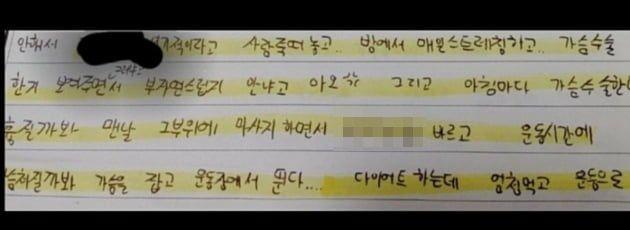 안해서 이라고 사람죽여놓고.. 방에서 매일스트레칭하고.. 가슴수술
한거 보여주면서 부자연스럽지 안냐고 아오 그리고 아침마다 가슴수술한
흉질까봐 맨날 그부위에 마사지 하면서 바르고 운동시간에
쳐질까봐 가슴을 잡고 운동장에서 뛴다.... 다이어트 하는데 엄청먹고 운동으로